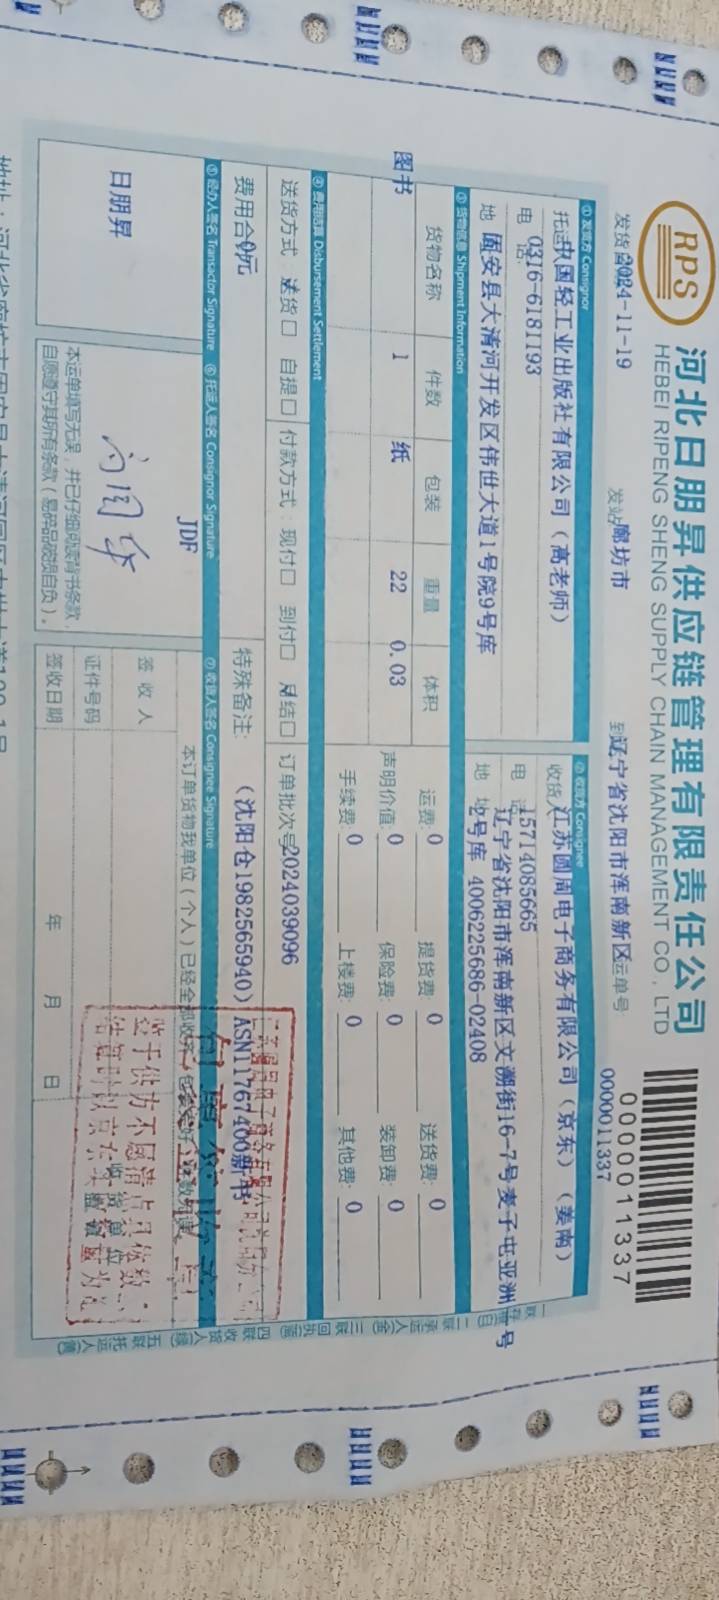 RPS
河北日朋昇供应链管理有限责任公司
HEBEI RIPENG SHENG SUPPLY CHAIN MANAGEMENT CO., LTD
0000011337
发货日期 2024-11-19
发站 廊坊市
到 辽宁省沈阳市浑南新区
运单号:
0000011337
① 发货方 Consignor
托运 中国轻工业出版社有限公司（高老师）
电 话: 0316-6181193
地 固安县大清河开发区伟世大道1号院9号库
② 收货方 Consignee
收货人 江苏圆周电子商务有限公司（京东）（姜南）
电 话: 15714085665
辽宁省沈阳市浑南新区文溯街16-7号麦子屯亚洲一号
地 址 2号库 4006225686-02408
③ 货物信息 Shipment Information
货物名称 件数 包装 重量 体积
图书 1 纸 22 0.03
运费: 0 提货费: 0 送货费: 0
声明价值: 0 保险费: 0 装卸费: 0
手续费: 0 上楼费: 0 其他费: 0
④ 费用结算 Disbursement Settlement
送货方式: 送货□ 自提□
付款方式: 现付□ 到付□ 月结□
订单批次号 2024039096
费用合 0元
特殊备注:
（沈阳仓1982565940）ASN11767400新书
⑤ 经办人签名 Transactor Signature
⑥ 托运人签名 Consignor Signature
⑦ 收货人签名 Consignee Signature
日朋昇
JDF
本运单填写无误，并已仔细阅读背书条款，
自愿遵守其所有条款（易碎品破损自负）。
本订单货物我单位（个人）已经全部收齐
签 收 人
证件号码
签收日期
年 月 日
收货单位
数量为准
一联 存根(白) 二联 承运人(金) 三联 回执(蓝) 四联 收货人(绿) 五联 托运人(黄)